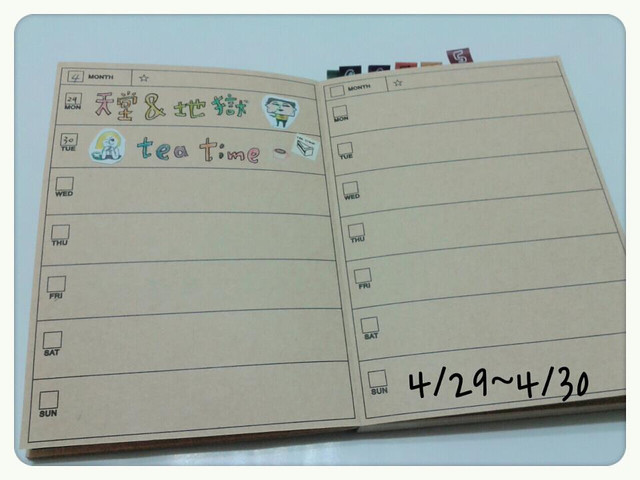 4 MONTH ☆
29 MON 天堂&地獄
30 TUE tea time
WED
THU
FRI
SAT
SUN
MONTH ☆
MON
TUE
WED
THU
FRI
SAT
SUN
4/29~4/30